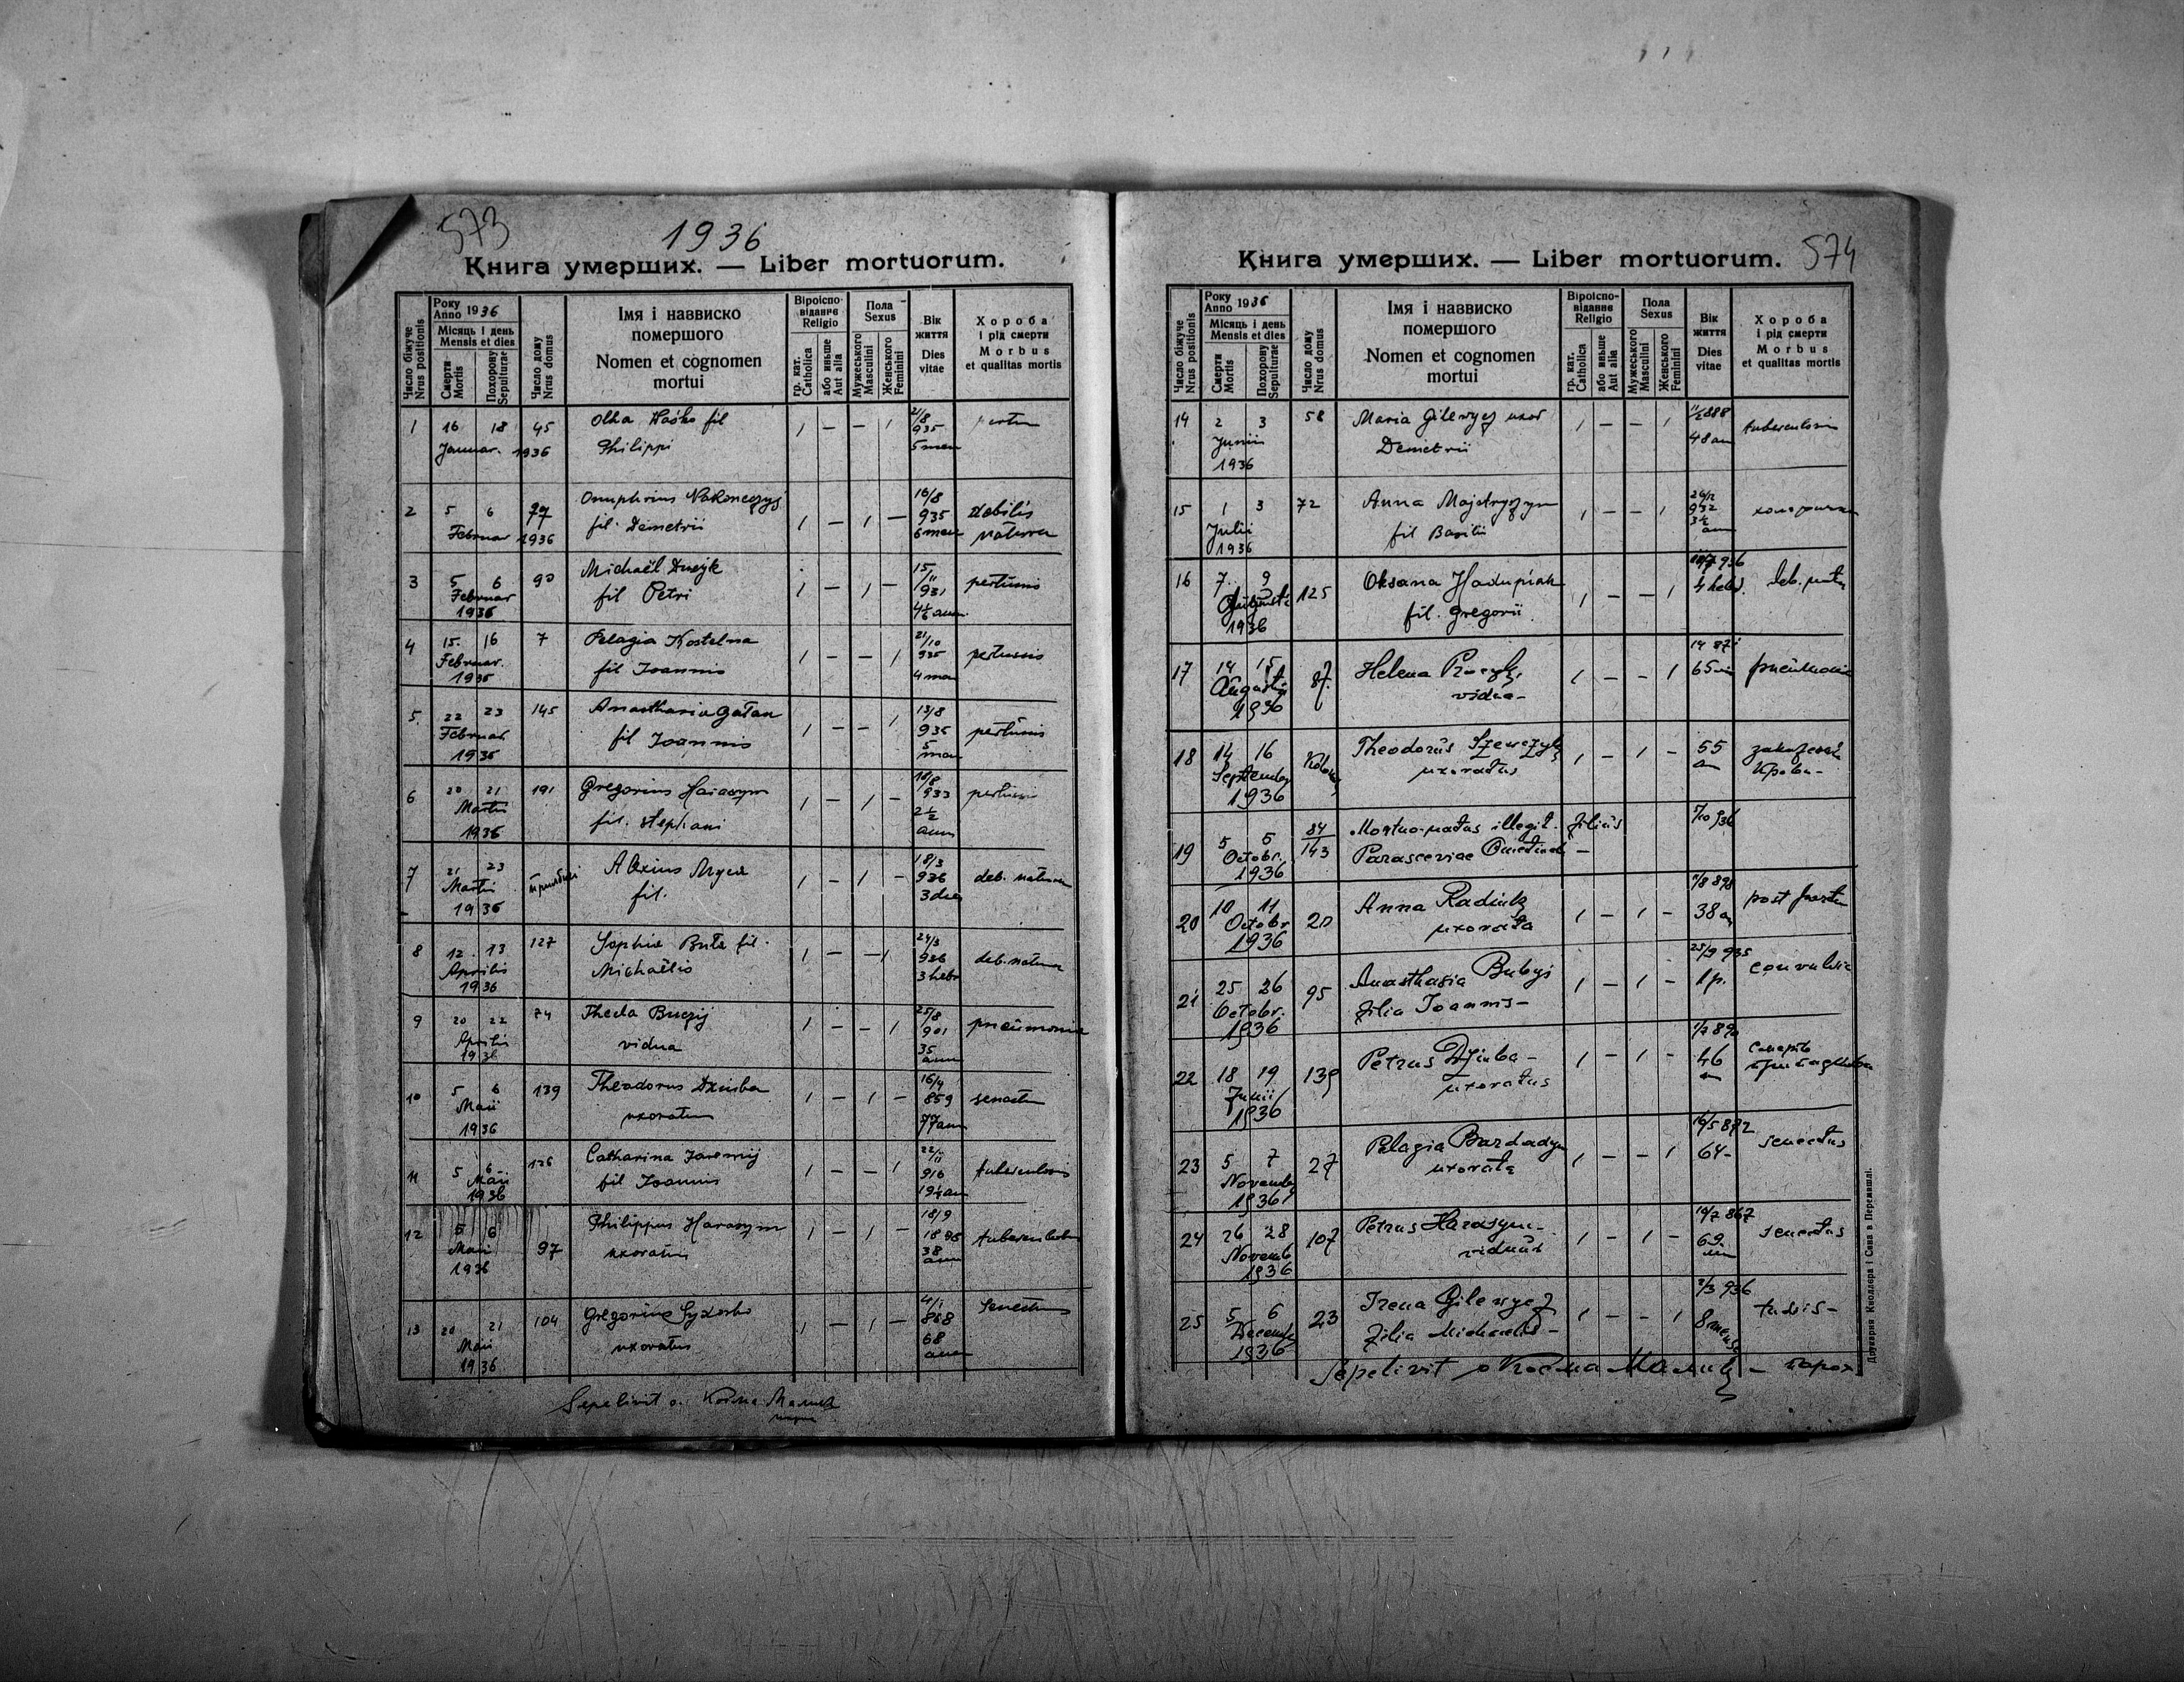 573
1936
Книга умерших. — Liber mortuorum.
Число біжуче
Nrus positionis
Року
Anno 1936
Місяць і день
Mensis et dies
Смерти
Mortis
Похорону
Sepulturae
Число дому
Nrus domus
Імя і наввиско
помершого
Nomen et cognomen
mortui
Віроіспо-
відання
Religio
гр. кат.
Catholica
або иньше
Aut alia
Пола
Sexus
Мужеського
Masculini
Женського
Feminini
Вік
життя
Dies
vitae
Хороба
і рід смерти
Morbus
et qualitas mortis
1 16 18 45 Olha Hasko fil 1 — — 1 21/8 935
Januar. 1936 Philippi 5 men
2 5 6 77 Onuphrius Nakoneczyj 1 — 1 — 16/8 935 debilis
Februar 1936 fil. Demetrii 6 men natura
3 5 6 90 Michaël 1 — 1 — 15/11 931 pertussis
Februar 1936 fil Petri 4½ ann
4 15. 16 7 Pelagia Kostelna 1 — — 1 21/10 935 pertussis
Februar. 1936 fil Joannis 4 men
5. 22 23 145 Anasthasia Gałan 1 — — 1 13/8 935 pertussis
Februar 1936 fil Joannis 5 men
6 20 21 191 Gregorius Harasym 1 — 1 — 933 pertussis
Martii 1936 fil. Stephani 2½ ann
7 21 23 Alexius 1 — 1 — 18/3 936 deb. natura
Martii 1936 fil. 3 dies
8 12. 13 127 Sophia Buła fil. 1 — — 1 24/3 936 deb. natura
Aprilis 1936 Michaëlis 3 hebd
9 20 22 74 Thecla 1 — — 1 25/8 901 pneumonia
Aprilis 1936 vidua 35 ann
10 5 6 139 Theodorus Dziuba 1 — 1 — 16/4 859 senectus
Maii 1936 uxoratus 77 ann
11 5 6 126 Catharina Jaremij 1 — — 1 22/11 916 tuberculosis
Maii 1936 fil Joannis 19½ ann
12 5 6 97 Philippus Harasym 1 — 1 — 18/9 1898 tuberculosis
Maii 1936 uxoratus 38 ann
13 20 21 104 Gregorius 1 — 1 — 4/1 868 senectus
Maii 1936 uxoratus 68 ann
Sepelivit o. Косма Малик
574
Книга умерших. — Liber mortuorum.
Число біжуче
Nrus positionis
Року
Anno 1936
Місяць і день
Mensis et dies
Смерти
Mortis
Похорону
Sepulturae
Число дому
Nrus domus
Імя і наввиско
помершого
Nomen et cognomen
mortui
Віроіспо-
відання
Religio
гр. кат.
Catholica
або иньше
Aut alia
Пола
Sexus
Мужеського
Masculini
Женського
Feminini
Вік
життя
Dies
vitae
Хороба
і рід смерти
Morbus
et qualitas mortis
14 2 3 58 Maria Gilewycz uxor 1 — — 1 888 tuberculosis
Junii 1936 Demetrii 48 ann
15 1 3 72 Anna Majdryczyn 1 — — 1 932
Julii 1936 fil Basilii 3½ ann
16 7. 9 125 Oksana Hadupiak 1 — — 1 936 deb. natu
Augusti 1936 fil. Gregorii 4 hebd.
17 14 15 87. Helena 1 — — 1 871 pneumonia
Augusti 1936 vidua — 65
18 14 16 Theodorus Szewczyk 1 — 1 — 55
September 1936 uxoratus an
19 5 5 84/143 Mortuo-natus illegit. filius 5/10 936
Octobr. 1936 Parasceviae —
20 10 11 20 Anna Radiuk 1 — 1 — 898 post partu
Octobr 1936 uxorata 38 an
21 25 26 95 Anasthasia Bubyś 1 — 1 — 25/9 935 convulsio
Octobr. 1936 filia Joannis — 1 р.
22 18 19 139 Petrus Dziuba — 1 — 1 — 890 смерть
Junii 1936 uxoratus 46 an
23 5 7 27 Pelagia Bardadyn 1 — — 1 16/5 872 senectus
Novembr 1936 uxorata 64 —
24 26 28 107 Petrus Harasym — 1 — 1 — 867 senectus
Novemb 1936 viduus 69. an
25 5 6 23 Irena Gilewycz 1 — — 1 2/3 936 tussis —
Decembr 1936 filia Michaelis — 8 mens
Sepelivit о Косма Малик — парох
Друкарня Кноллера і Сина в Перемишлі.